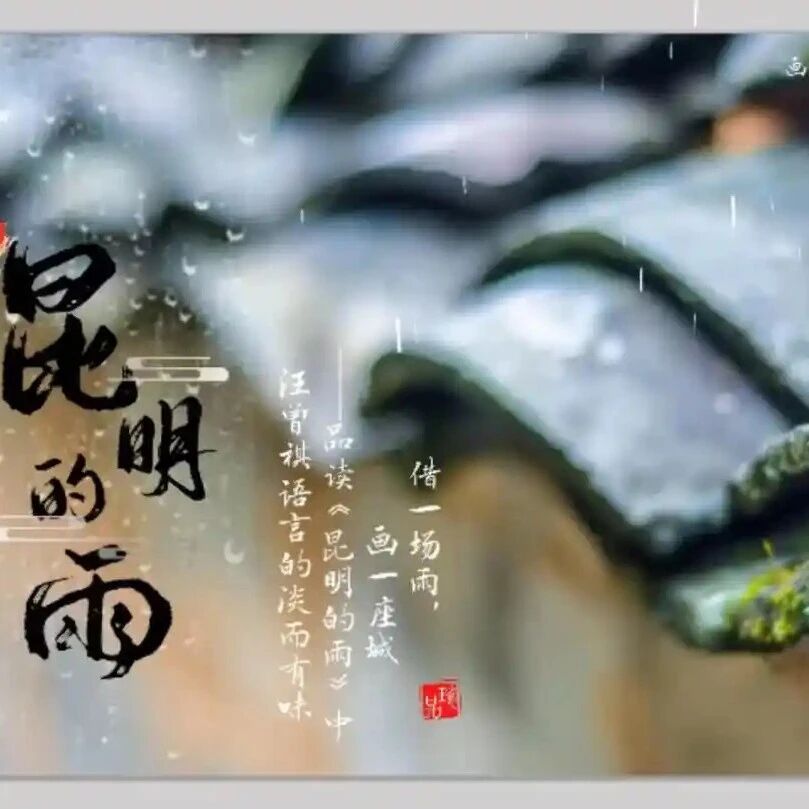 昆明的雨
借一场雨，
画一座城
——品读《昆明的雨》中
汪曾祺语言的淡而有味
画